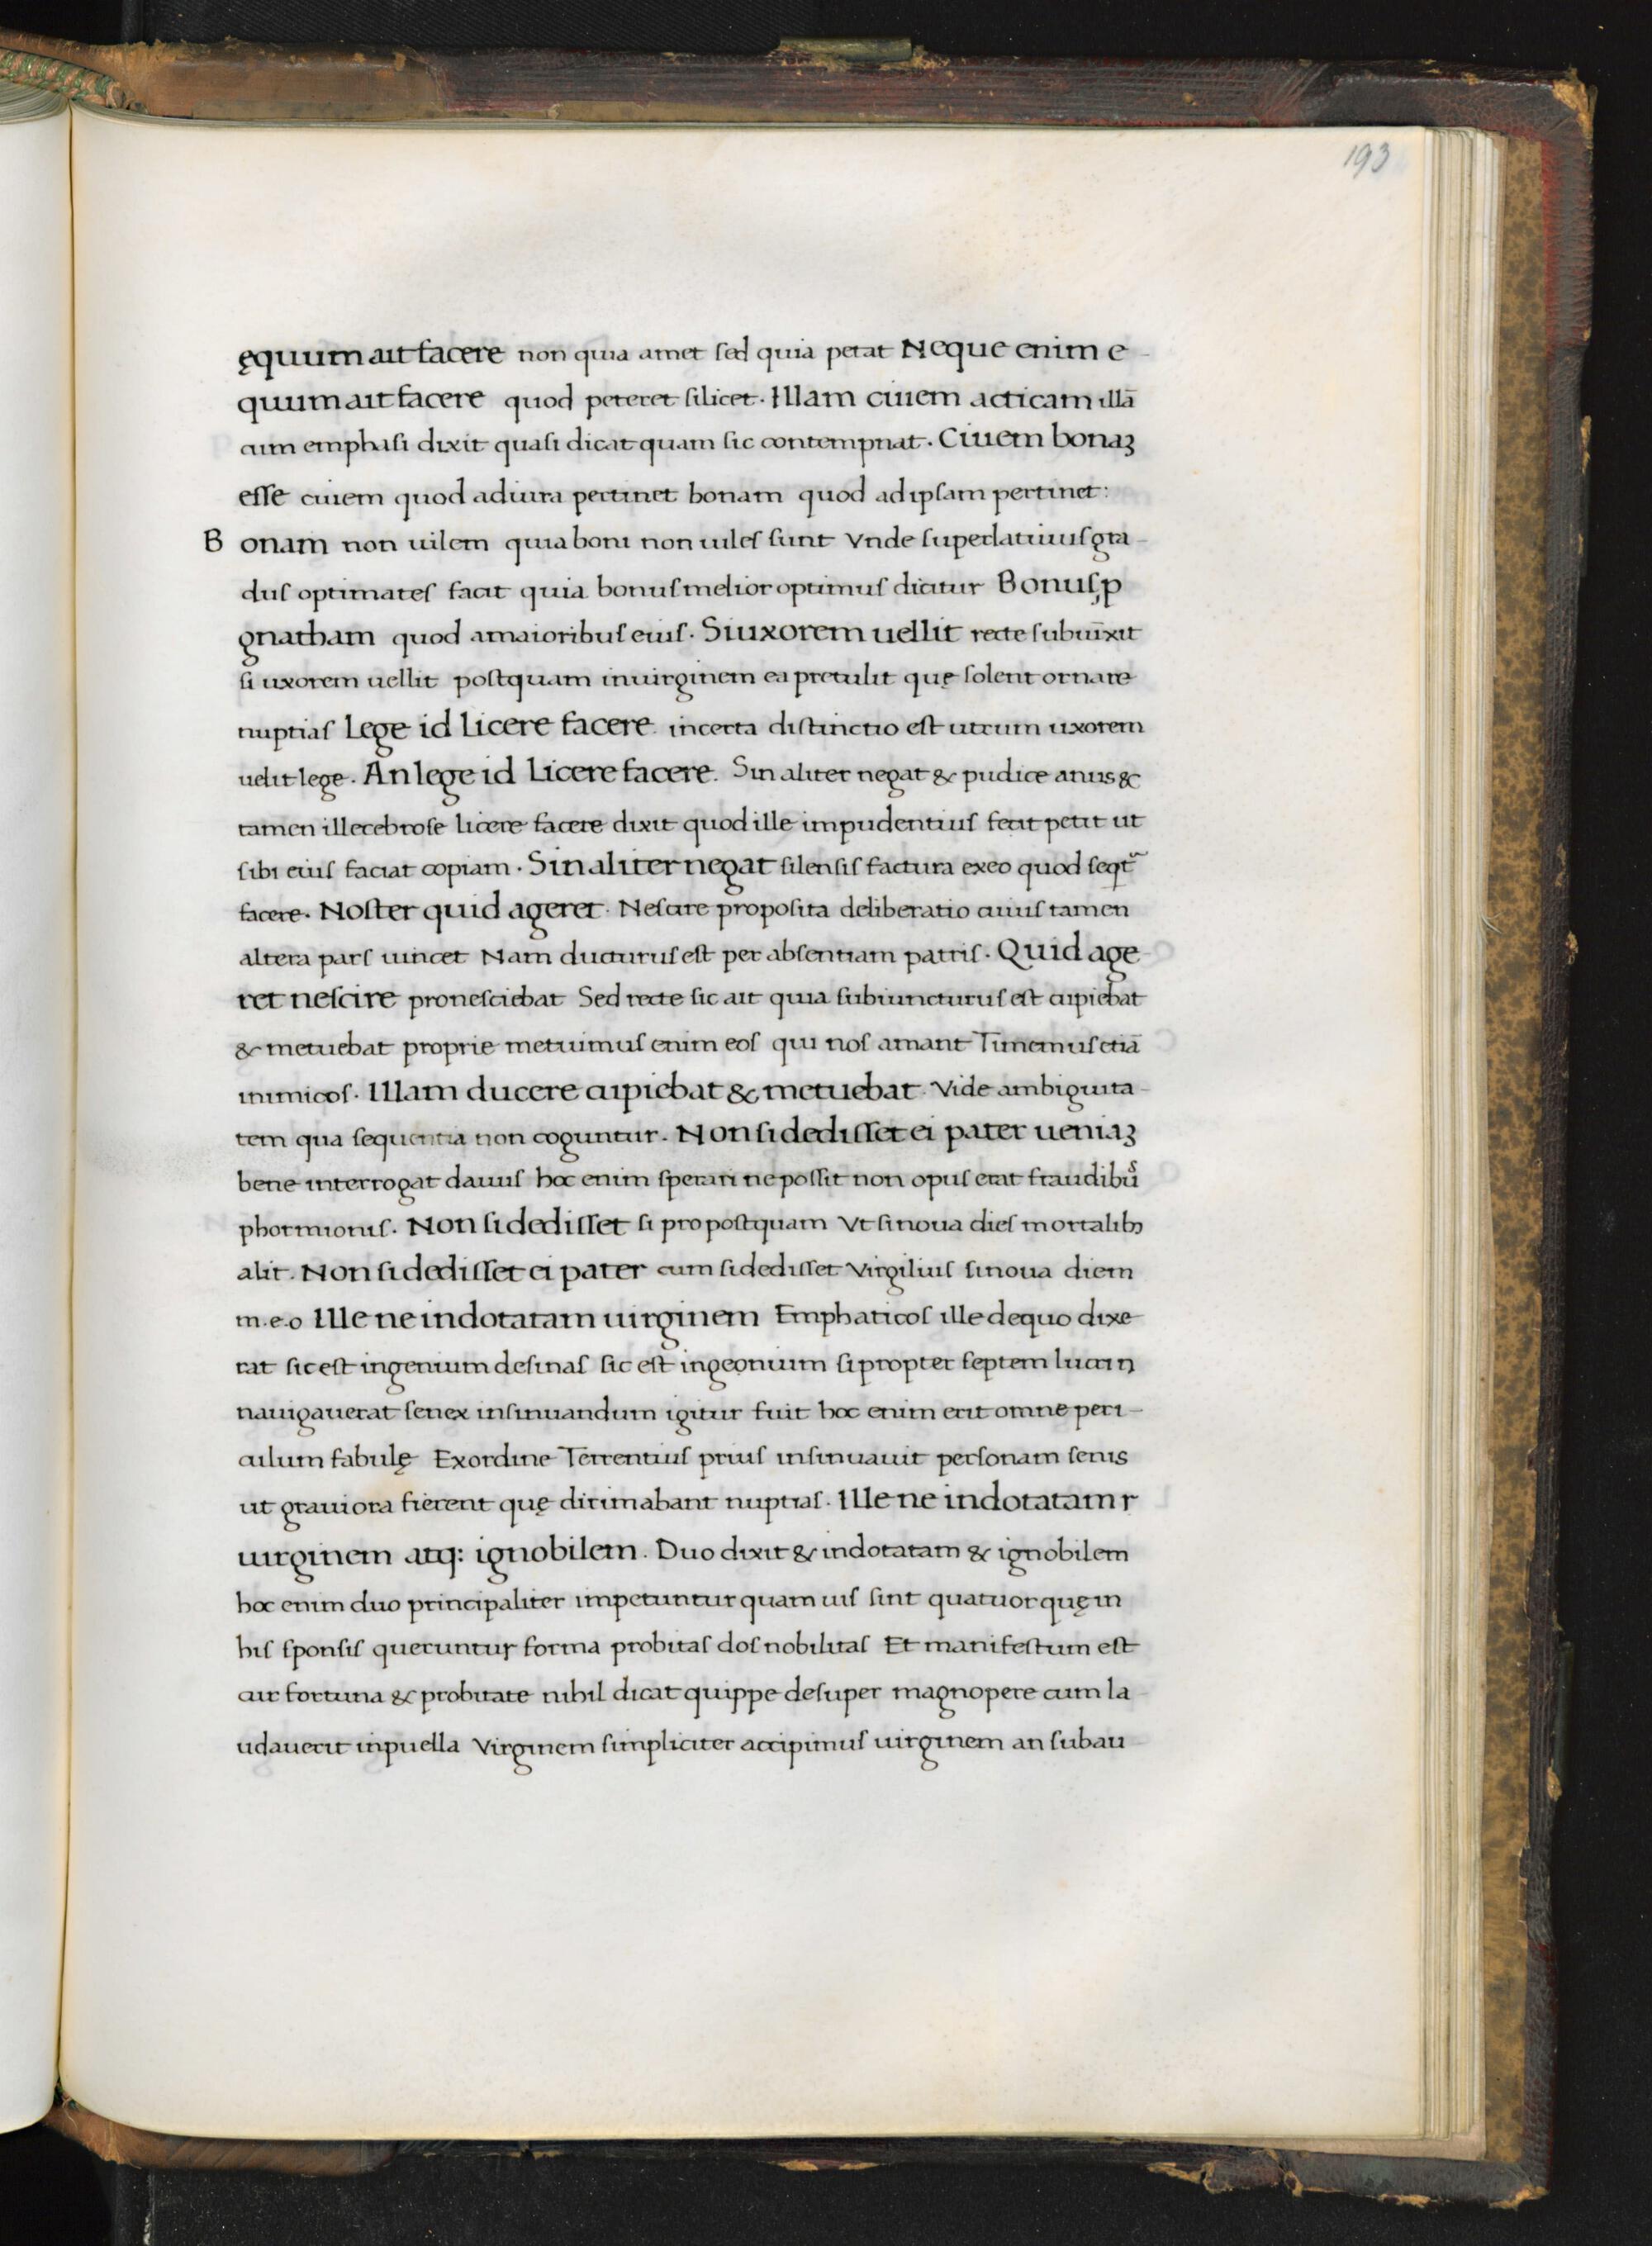 193
ęquum ait facere non quia amet sed quia petat Neque enim e
quum ait facere quod peteret silicet. Illam ciuem acticam illā
cum emphasi dixit quasi dicat quam sic contempnat. Ciuem bonaꝫ
esse ciuem quod adiura pertinet bonam quod ad ipsam pertinet:
Bonam non uilem quia boni non uiles sunt Vnde superlatiuus gra
dus optimates facit quia bonus melior optimus dicitur Bonus, p
gnatham quod amaioribus eius. Si uxorem uellit recte subiūxit
si uxorem uellit postquam inuirginem ea pretulit quę solent ornare
nuptias Lege id Licere facere. incerta distinctio est utrum uxorem
uelit lege. An lege id Licere facere. Sin aliter negat & pudice anus &
tamen illecebrose licere facere dixit quod ille impudentius fecit petit ut
sibi eius faciat copiam. Sin aliter negat silensis factura exeo quod seqt̃
facere. Noster quid ageret. Nescire proposita deliberatio cuius tamen
altera pars uincet Nam ducturus est per absentiam patris. Quid age
ret nescire pronesciebat Sed recte sic ait quia subiuncturus est cupiebat
& metuebat proprie metuimus enim eos qui nos amant Timemus etiā
inimicos. Illam ducere cupiebat & metuebat. Vide ambiguita
tem qua sequentia non coguntur. Non si dedisset ei pater ueniaꝫ
bene interrogat dauus hoc enim sperari ne possit non opus erat fraudibuˢ
phormionis. Non si dedisset si pro postquam Vt si noua dies mortalibꝫ
alit. Non si dedisset ei pater cum si dedisset Virgilius si noua diem
m.e.o Ille ne indotatam uirginem Emphaticos ille dequo dixe
rat sic est ingenium desinas sic est ingeonium si propter septem lucrin
nauigauerat senex insinuandum igitur fuit hoc enim erit omne peri
culum fabulę Exordine Terrentius prius insinuauit personam senis
ut grauiora fierent quę dirimabant nuptias. Ille ne indotatam r
uirginem atq: ignobilem. Duo dixit & indotatam & ignobilem
hoc enim duo principaliter impetuntur quam uis sint quatuor quę in
his sponsis queruntur forma probitas dos nobilitas Et manifestum est
cur fortuna & probitate nihil dicat quippe desuper magnopere cum la
udauerit inpuella Virginem simpliciter accipimus uirginem an subau